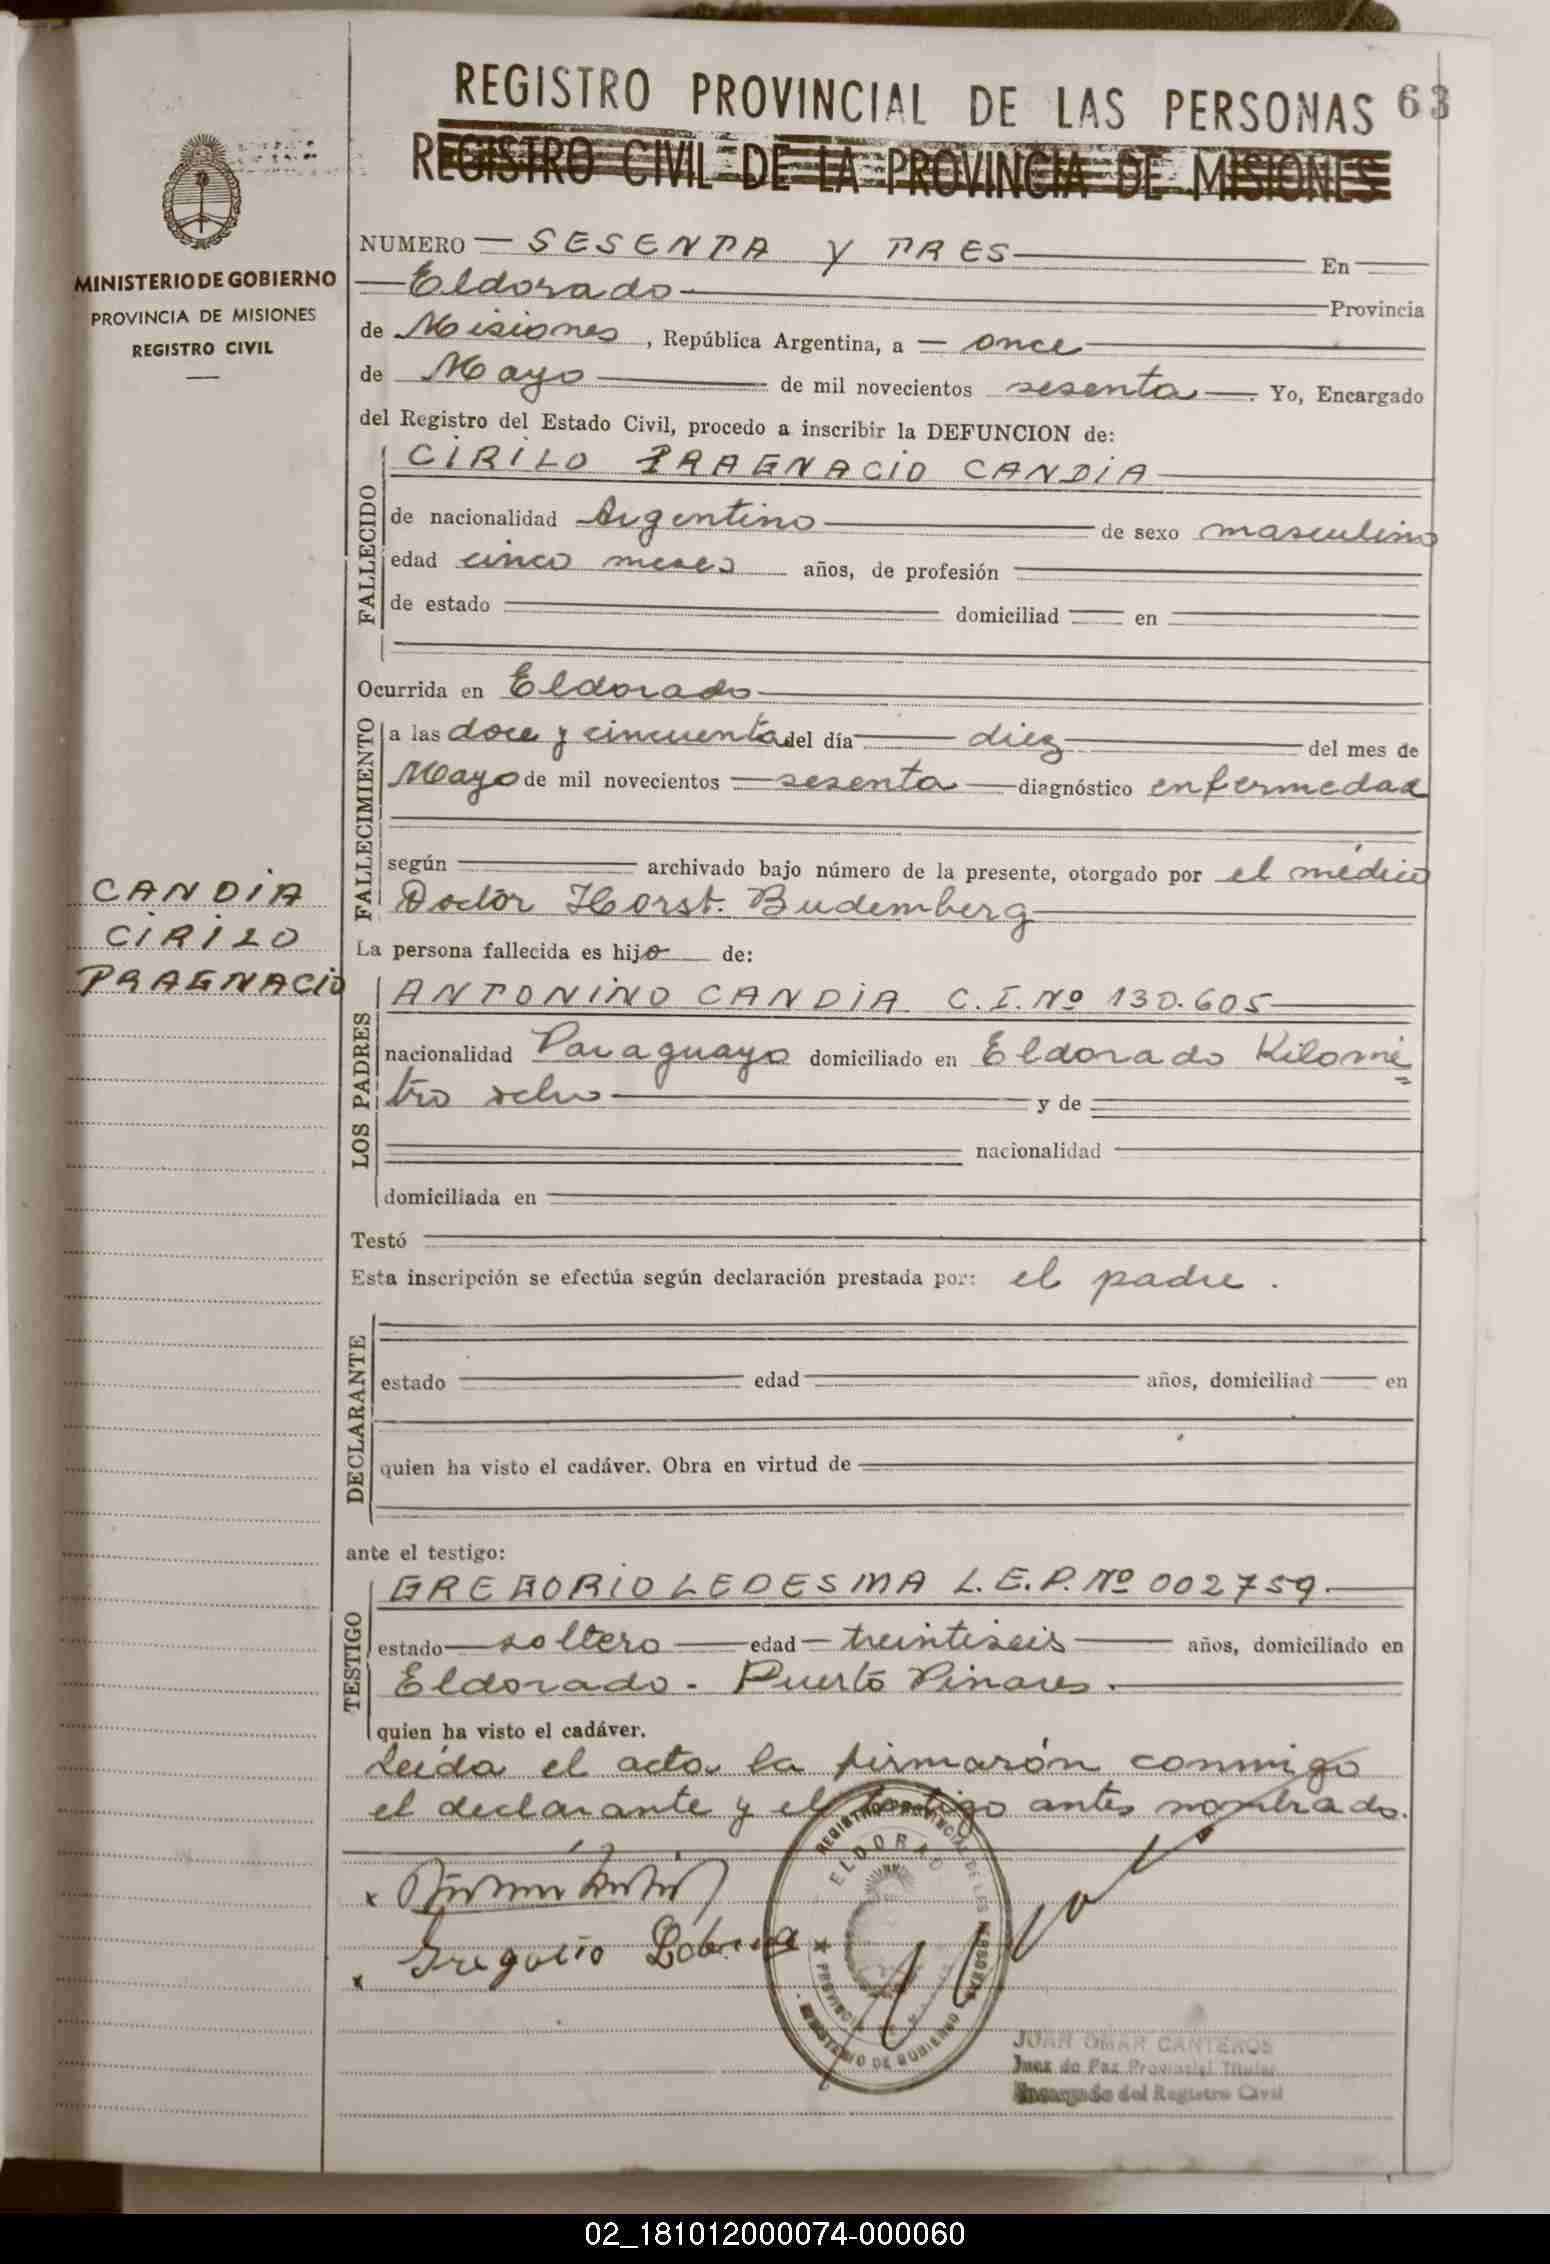 REGISTRO PROVINCIAL DE LAS PERSONAS 63
REGISTRO CIVIL DE LA PROVINCIA DE MISIONES
MINISTERIO DE GOBIERNO
PROVINCIA DE MISIONES
REGISTRO CIVIL
NUMERO SESENTA Y TRES En
Eldorado Provincia
de Misiones, República Argentina, a once
de Mayo de mil novecientos sesenta. Yo, Encargado
del Registro del Estado Civil, procedo a inscribir la DEFUNCION de:
FALLECIDO
CIRILO TRAGNACIO CANDIA
de nacionalidad Argentino de sexo masculino
edad cinco meses años, de profesión
de estado domiciliad en
Ocurrida en Eldorado
FALLECIMIENTO
a las doce y cincuenta del día diez del mes de
Mayo de mil novecientos sesenta diagnóstico enfermedad
según archivado bajo número de la presente, otorgado por el médico
Doctor Horst. Budemberg
CANDIA
CIRILO
TRAGNACIO
La persona fallecida es hijo de:
LOS PADRES
ANTONINO CANDIA C.I. Nº 130.605
nacionalidad Paraguayo domiciliado en Eldorado Kilome
tro ocho y de
nacionalidad
domiciliada en
Testó
Esta inscripción se efectúa según declaración prestada por: el padre.
DECLARANTE
estado edad años, domiciliad en
quien ha visto el cadáver. Obra en virtud de
ante el testigo:
TESTIGO
GREGORIO LEDESMA L.E.P. Nº 002759.
estado soltero edad treintiseis años, domiciliado en
Eldorado - Puerto Pinares.
quien ha visto el cadáver.
Leída el acta la firmarón conmigo
el declarante y el testigo antes nombrado.
x
x Gregorio
REGISTRO PROVINCIAL DE LAS PERSONAS
ELDORADO
PROVINCIA DE MISIONES
MINISTERIO DE GOBIERNO
JUAN OMAR CANTEROS
Juez de Paz Provincial Titular
Encargado del Registro Civil
02_181012000074-000060